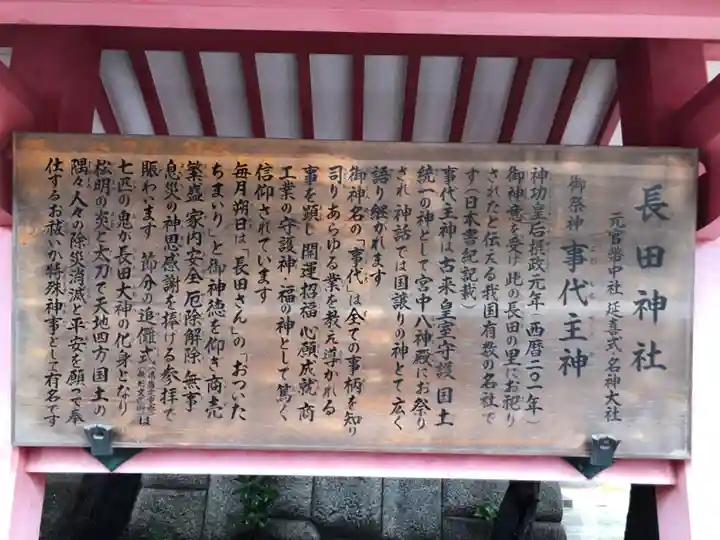 長田神社
元官幣中社 延喜式・名神大社
御祭神 事代主神
神功皇后摂政元年（西暦二〇一年）
御神意を受け此の長田の里にお祀り
されたと伝える我国有数の名社で
す（日本書紀記載）
事代主神は古来皇室守護・国土
統一の神として宮中八神殿にお祭り
され 神話では国譲りの神とて広く
語り継がれます
御神名の「事代」は全ての事柄を知り
司り あらゆる業を教え導かれる
事を顕し 開運招福 心願成就 商
工業の守護神・福の神として篤く
信仰されています
毎月朔日は「長田さん」の「おついた
ちまいり」と御神徳を仰ぎ 商売
繁盛 家内安全 厄除解除 無事
息災の神恩感謝を捧げる参拝で
賑わいます 節分の追儺式は
七匹の鬼が長田大神の化身となり
松明の炎と太刀で天地四方・国土の
隅々 人々の除災消滅と平安を願って奉
仕するお祓いが特殊神事として有名です